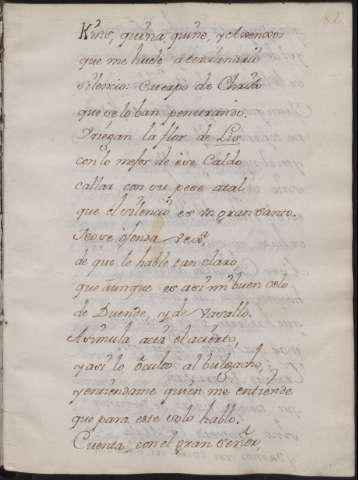 82
Kirie, quina quine, y Avenxos
que me huele a tordanario
silencio: Cuerpo de Christo
que se lo ban penetrando.
Friegan la flor de Lis
con lo mejor de ese Caldo
callar con su pese atal
que el silencio es un gran santo.
No se ofenda
de que le hable tan claro
que aunque es asi mi buen celo
de Duende, y de Vasallo.
Asimula acta el acierto,
y asi lo oculto al bulgacho,
y entiendame quien me entiende
que para este solo hablo.
Cuenta con el gran señor,